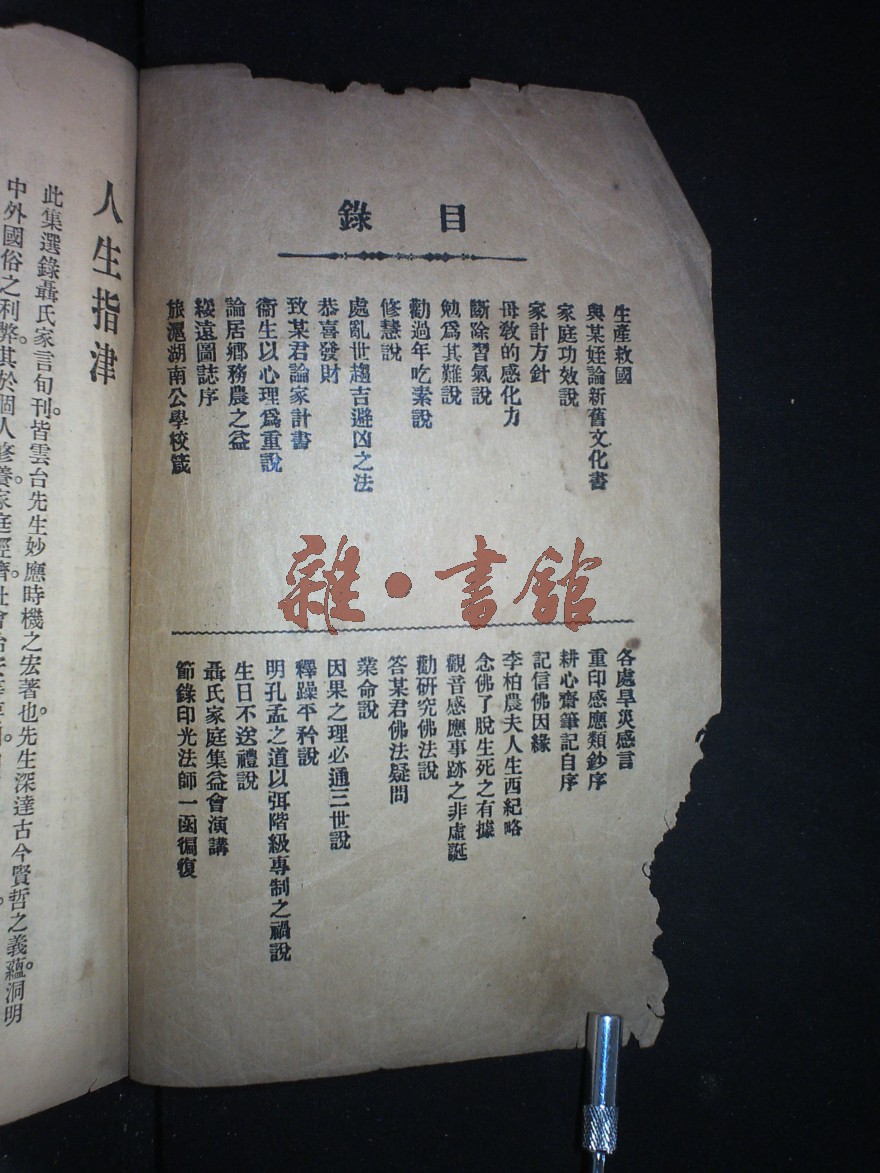 目錄
生產救國
與某姪論新舊文化書
家庭功效說
家計方針
母敎的感化力
斷除習氣說
勉爲其難說
勸過年吃素說
修慧說
處亂世趨吉避凶之法
恭喜發財
致某君論家計書
衞生以心理爲重說
論居鄉務農之益
綏遠圖誌序
旅滬湖南公學校箴
各處旱災感言
重印感應類鈔序
耕心齋筆記自序
記信佛因緣
李柏農夫人生西紀略
念佛了脫生死之有據
觀音感應事跡之非虛誕
勸研究佛法說
答某君佛法疑問
業命說
因果之理必通三世說
釋躁平矜說
明孔孟之道以弭階級專制之禍說
生日不送禮說
聶氏家庭集益會演講
節錄印光法師一函徧復
雜·書館
人生指津
此集選錄聶氏家言旬刊。皆雲台先生妙應時機之宏著也。先生深達古今賢哲之義蘊。洞明
中外國俗之利弊。其於個人修養。家庭經濟。社會